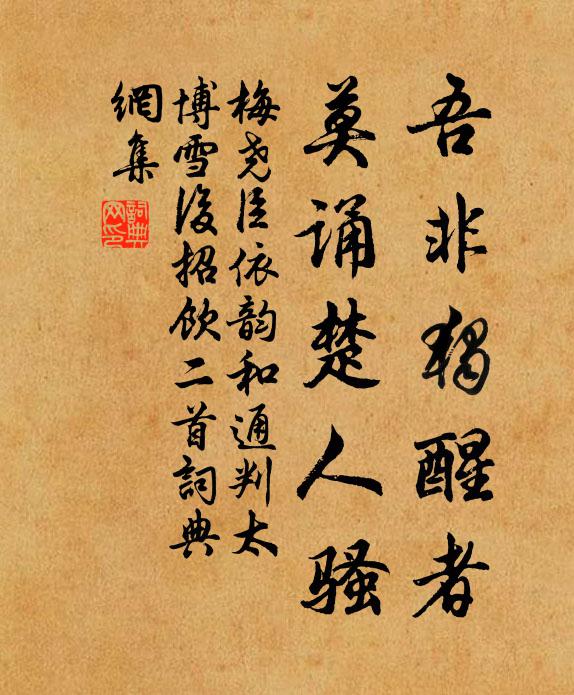 吾非独醒者
莫诵楚人骚
梅尧臣依韵和通判太
博雪后招饮二首詞典
網集
詞典
网印